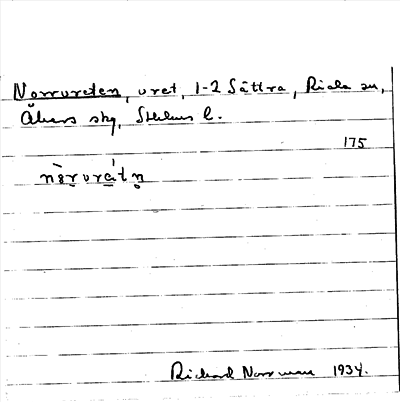 Norrureten, uret, 1-2 Sättra, Riala sn,
Åkers skg, Sthlms l.
175
Richard Norrman 1934.